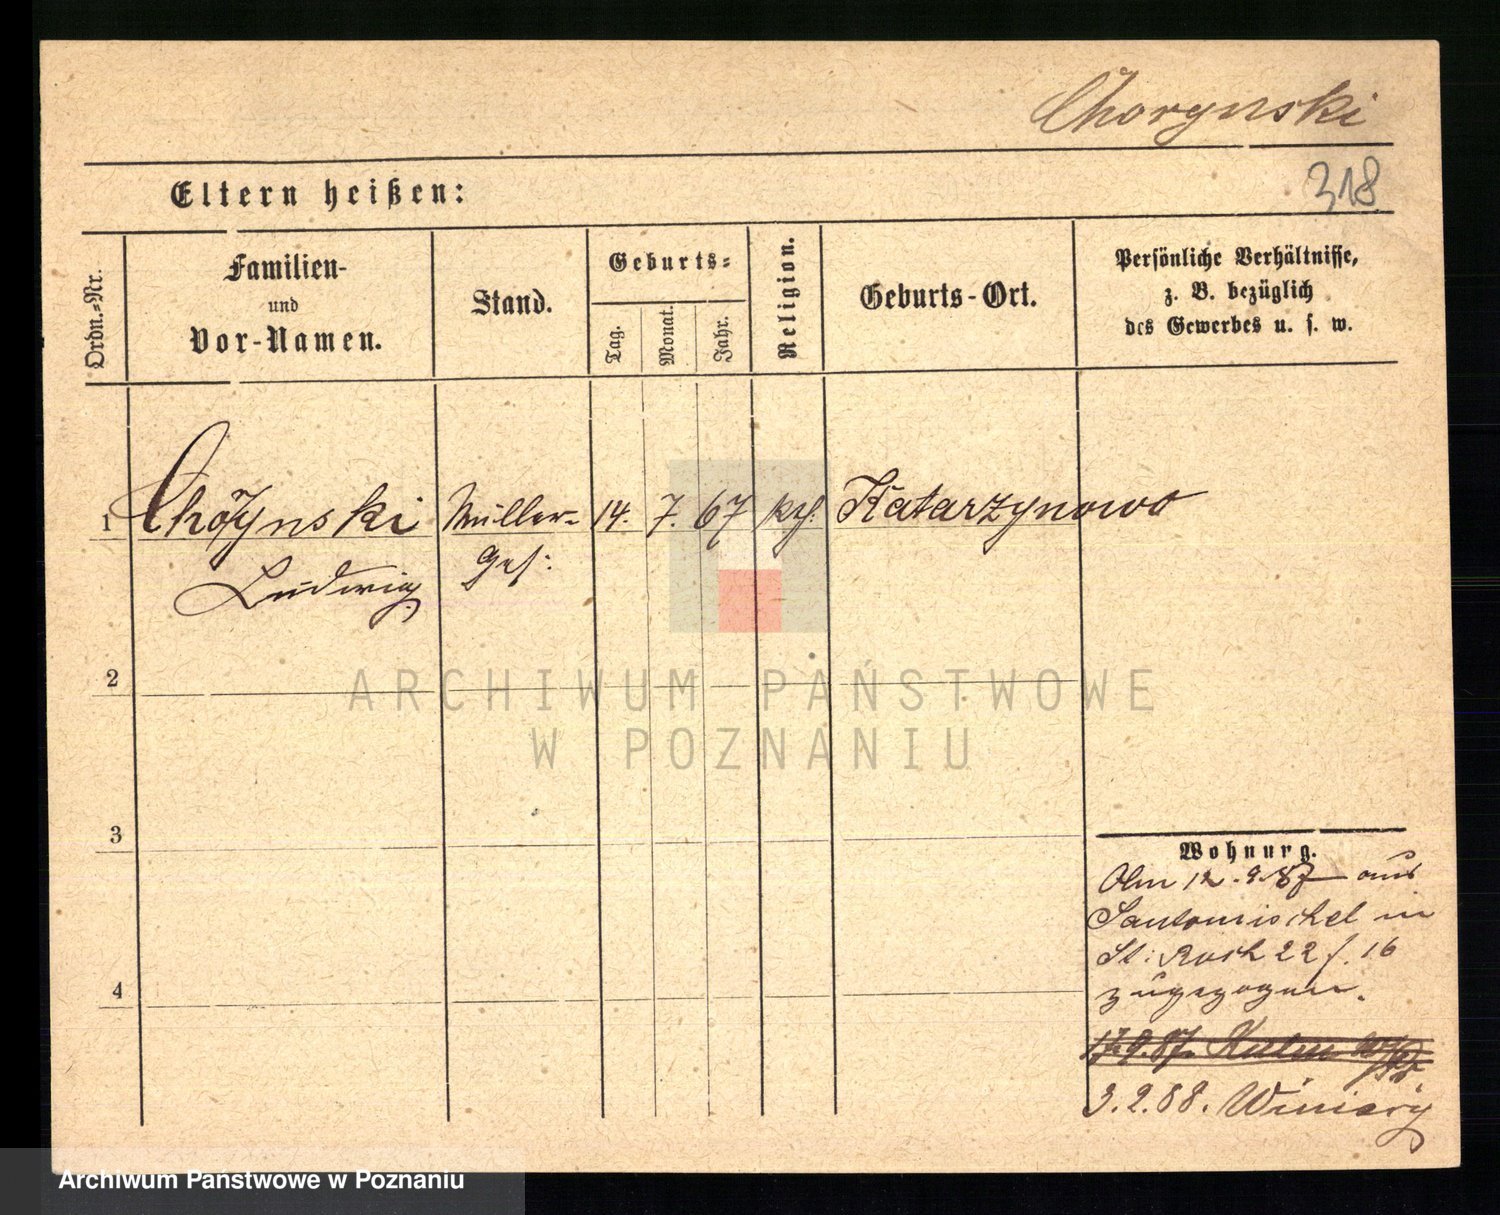 Chorynski
318
Eltern heißen:
Ordn.-Nr.
Familien-
und
Vor-Namen.
Stand.
Geburts-
Tag.
Monat.
Jahr.
Religion.
Geburts-Ort.
Persönliche Verhältnisse,
z. B. bezüglich
des Gewerbes u. s. w.
1 Chorynski Müller- 14. 7. 67 kth. Katarzynowo
Ludwig Ges:
2
ARCHIWUM PAŃSTWOWE
W POZNANIU
3
4
Wohnung.
12.9.87 aus
Santomischel in
St: Roch 22 f. 16
zugezogen.
17.9.87.
3.2.88. Winiary
Archiwum Państwowe w Poznaniu